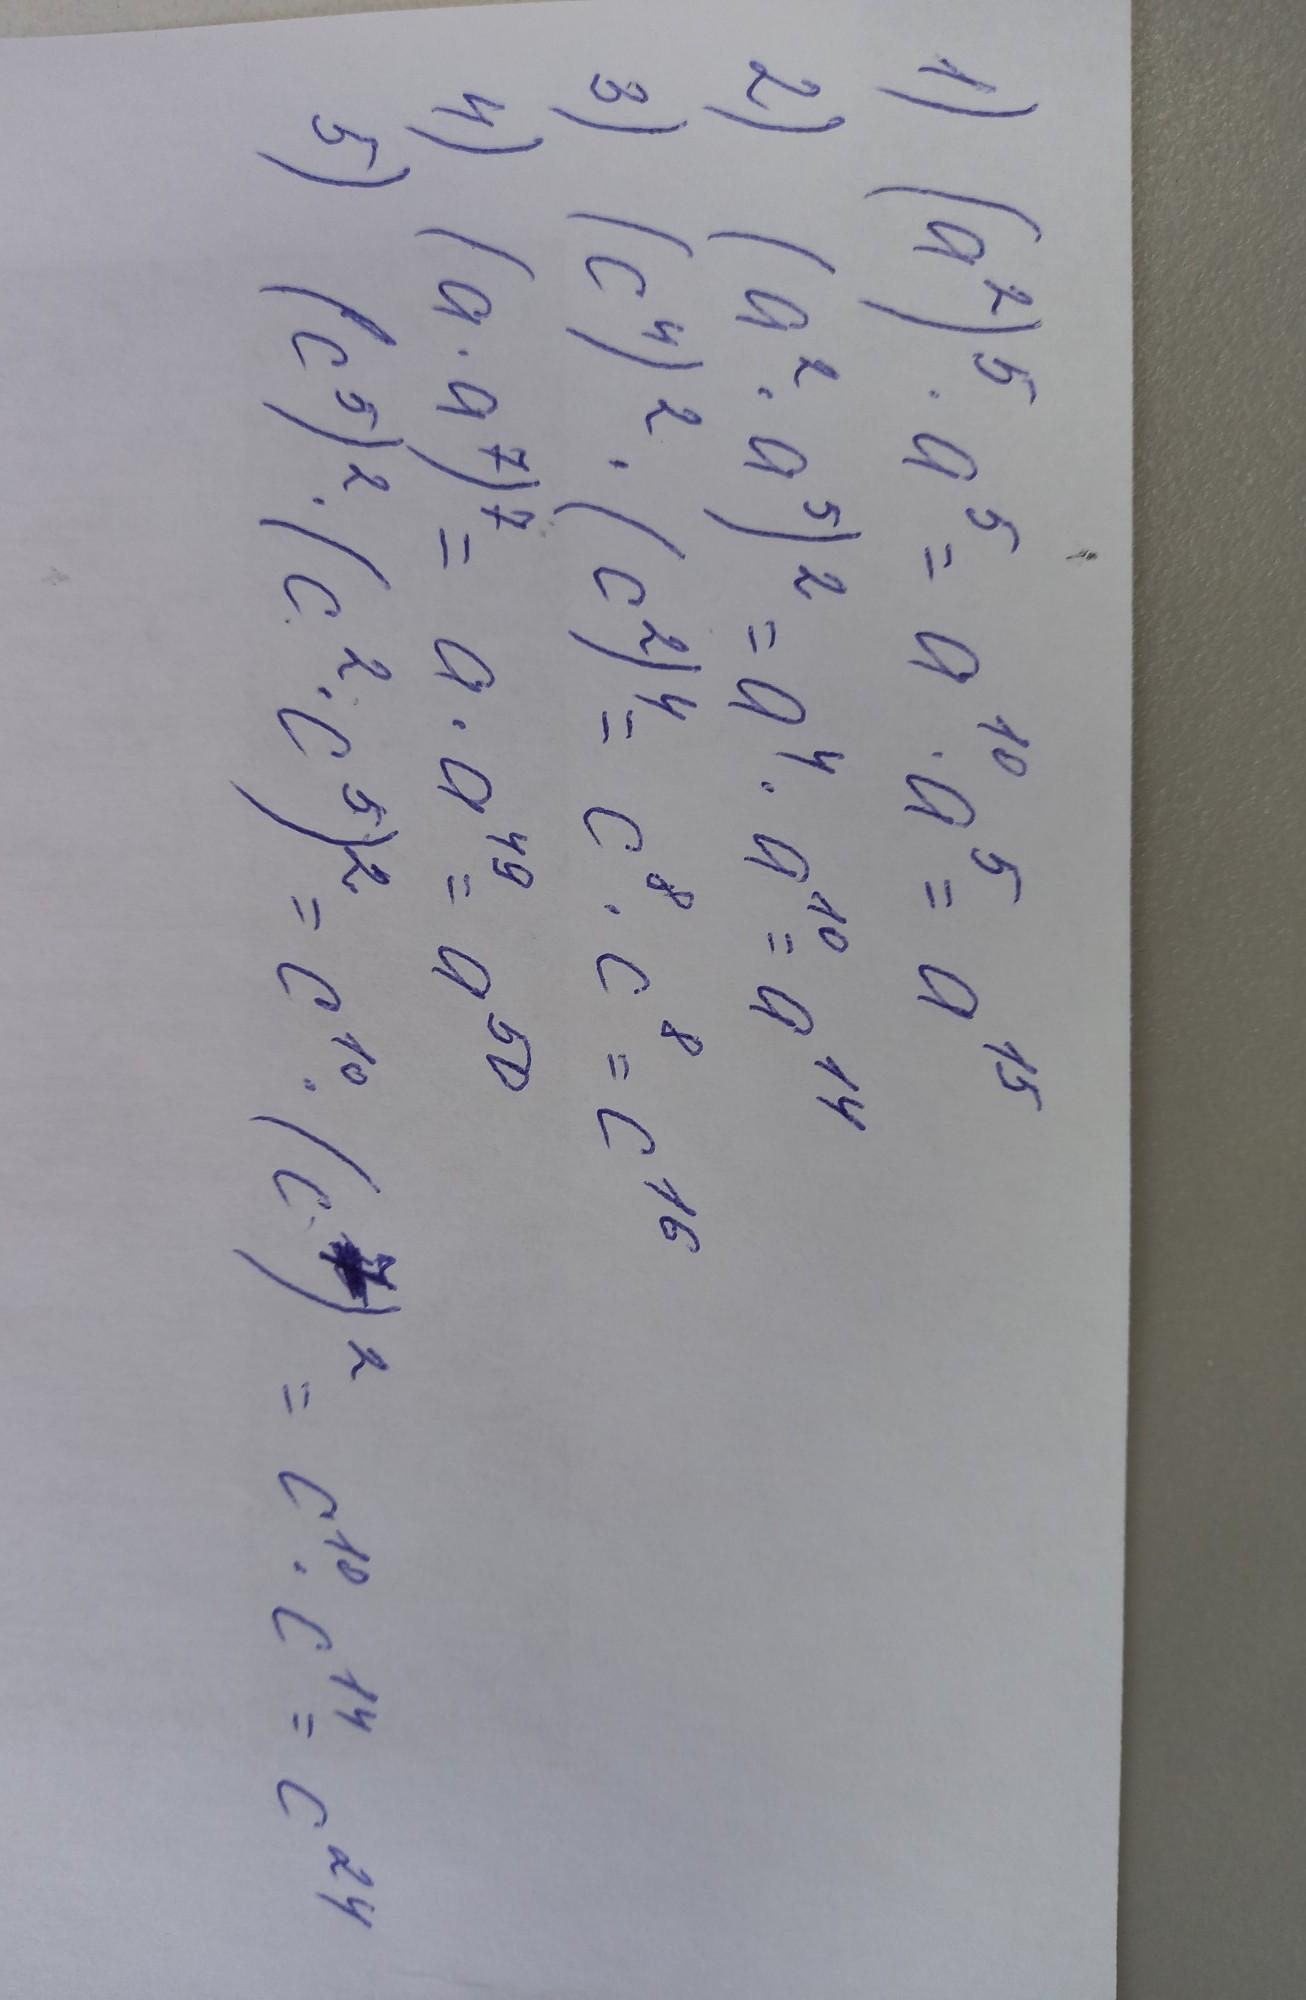 1) (a²)⁵ · a⁵ = a¹⁰ · a⁵ = a¹⁵
2) (a² · a⁵)² = a⁴ · a¹⁰ = a¹⁴
3) (c⁴)² · (c²)⁴ = c⁸ · c⁸ = c¹⁶
4) (a · a⁷)⁷ = a · a⁴⁹ = a⁵⁰
5) (c⁵)² · (c² · c⁵)² = c¹⁰ · (c⁷)² = c¹⁰ · c¹⁴ = c²⁴